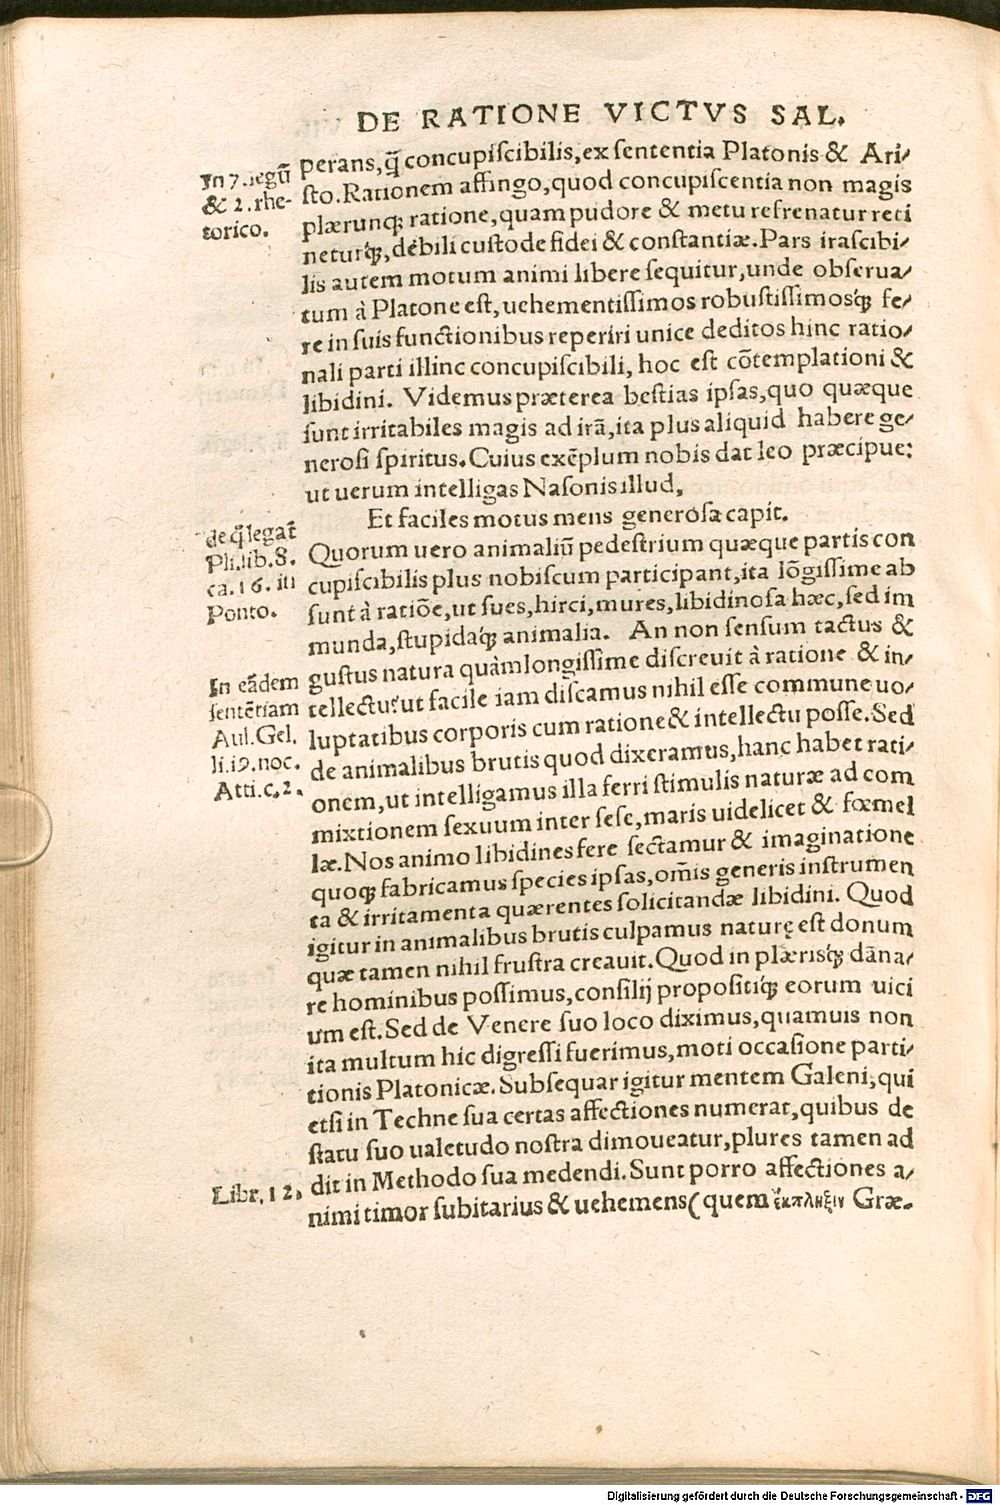 DE RATIONE VICTVS SAL.
In 7. legū
& 2. rhe-
torico.
perans, q̃ concupiscibilis, ex sententia Platonis & Ari-
sto. Rationem affingo, quod concupiscentia non magis
plærunq; ratione, quam pudore & metu refrenatur reti
neturq́;, debili custode fidei & constantiæ. Pars irascibi-
lis autem motum animi libere sequitur, unde obserua-
tum à Platone est, uehementissimos robustissimosq́; fe-
re in suis functionibus reperiri unice deditos hinc ratio-
nali parti illinc concupiscibili, hoc est cōtemplationi &
libidini. Videmus præterea bestias ipsas, quo quæque
sunt irritabiles magis ad irā, ita plus aliquid habere ge-
nerosi spiritus. Cuius exēplum nobis dat leo præcipue:
ut uerum intelligas Nasonis illud,
Et faciles motus mens generosa capit.
de q̃ legat̃
Pli. lib. 8.
ca. 16. in
Ponto.
Quorum uero animaliū pedestrium quæque partis con
cupiscibilis plus nobiscum participant, ita lōgissime ab
sunt à ratiōe, ut sues, hirci, mures, libidinosa hæc, sed im
munda, stupidaq́; animalia. An non sensum tactus &
gustus natura quàm longissime discreuit à ratione & in-
tellectu? ut facile iam discamus nihil esse commune uo-
luptatibus corporis cum ratione & intellectu posse. Sed
de animalibus brutis quod dixeramus, hanc habet rati-
onem, ut intelligamus illa ferri stimulis naturæ ad com
mixtionem sexuum inter sese, maris uidelicet & fœmel
læ. Nos animo libidines fere sectamur & imaginatione
quoq; fabricamus species ipsas, om̄is generis instrumen
ta & irritamenta quærentes solicitandæ libidini. Quod
igitur in animalibus brutis culpamus naturę est donum
quæ tamen nihil frustra creauit. Quod in plærisq́; dāna-
re hominibus possimus, consilij propositiq́; eorum uici
um est. Sed de Venere suo loco diximus, quamuis non
ita multum hic digressi fuerimus, moti occasione parti-
tionis Platonicæ. Subsequar igitur mentem Galeni, qui
etsi in Techne sua certas affectiones numerat, quibus de
statu suo ualetudo nostra dimoueatur, plures tamen ad
dit in Methodo sua medendi. Sunt porro affectiones a-
nimi timor subitarius & uehemens (quem ἔκπληξιν Græ-
In eādem
sentētiam
Aul. Gel.
li. 19. noc.
Atti. c. 2.
Libr. 12.
Digitalisierung gefördert durch die Deutsche Forschungsgemeinschaft - DFG